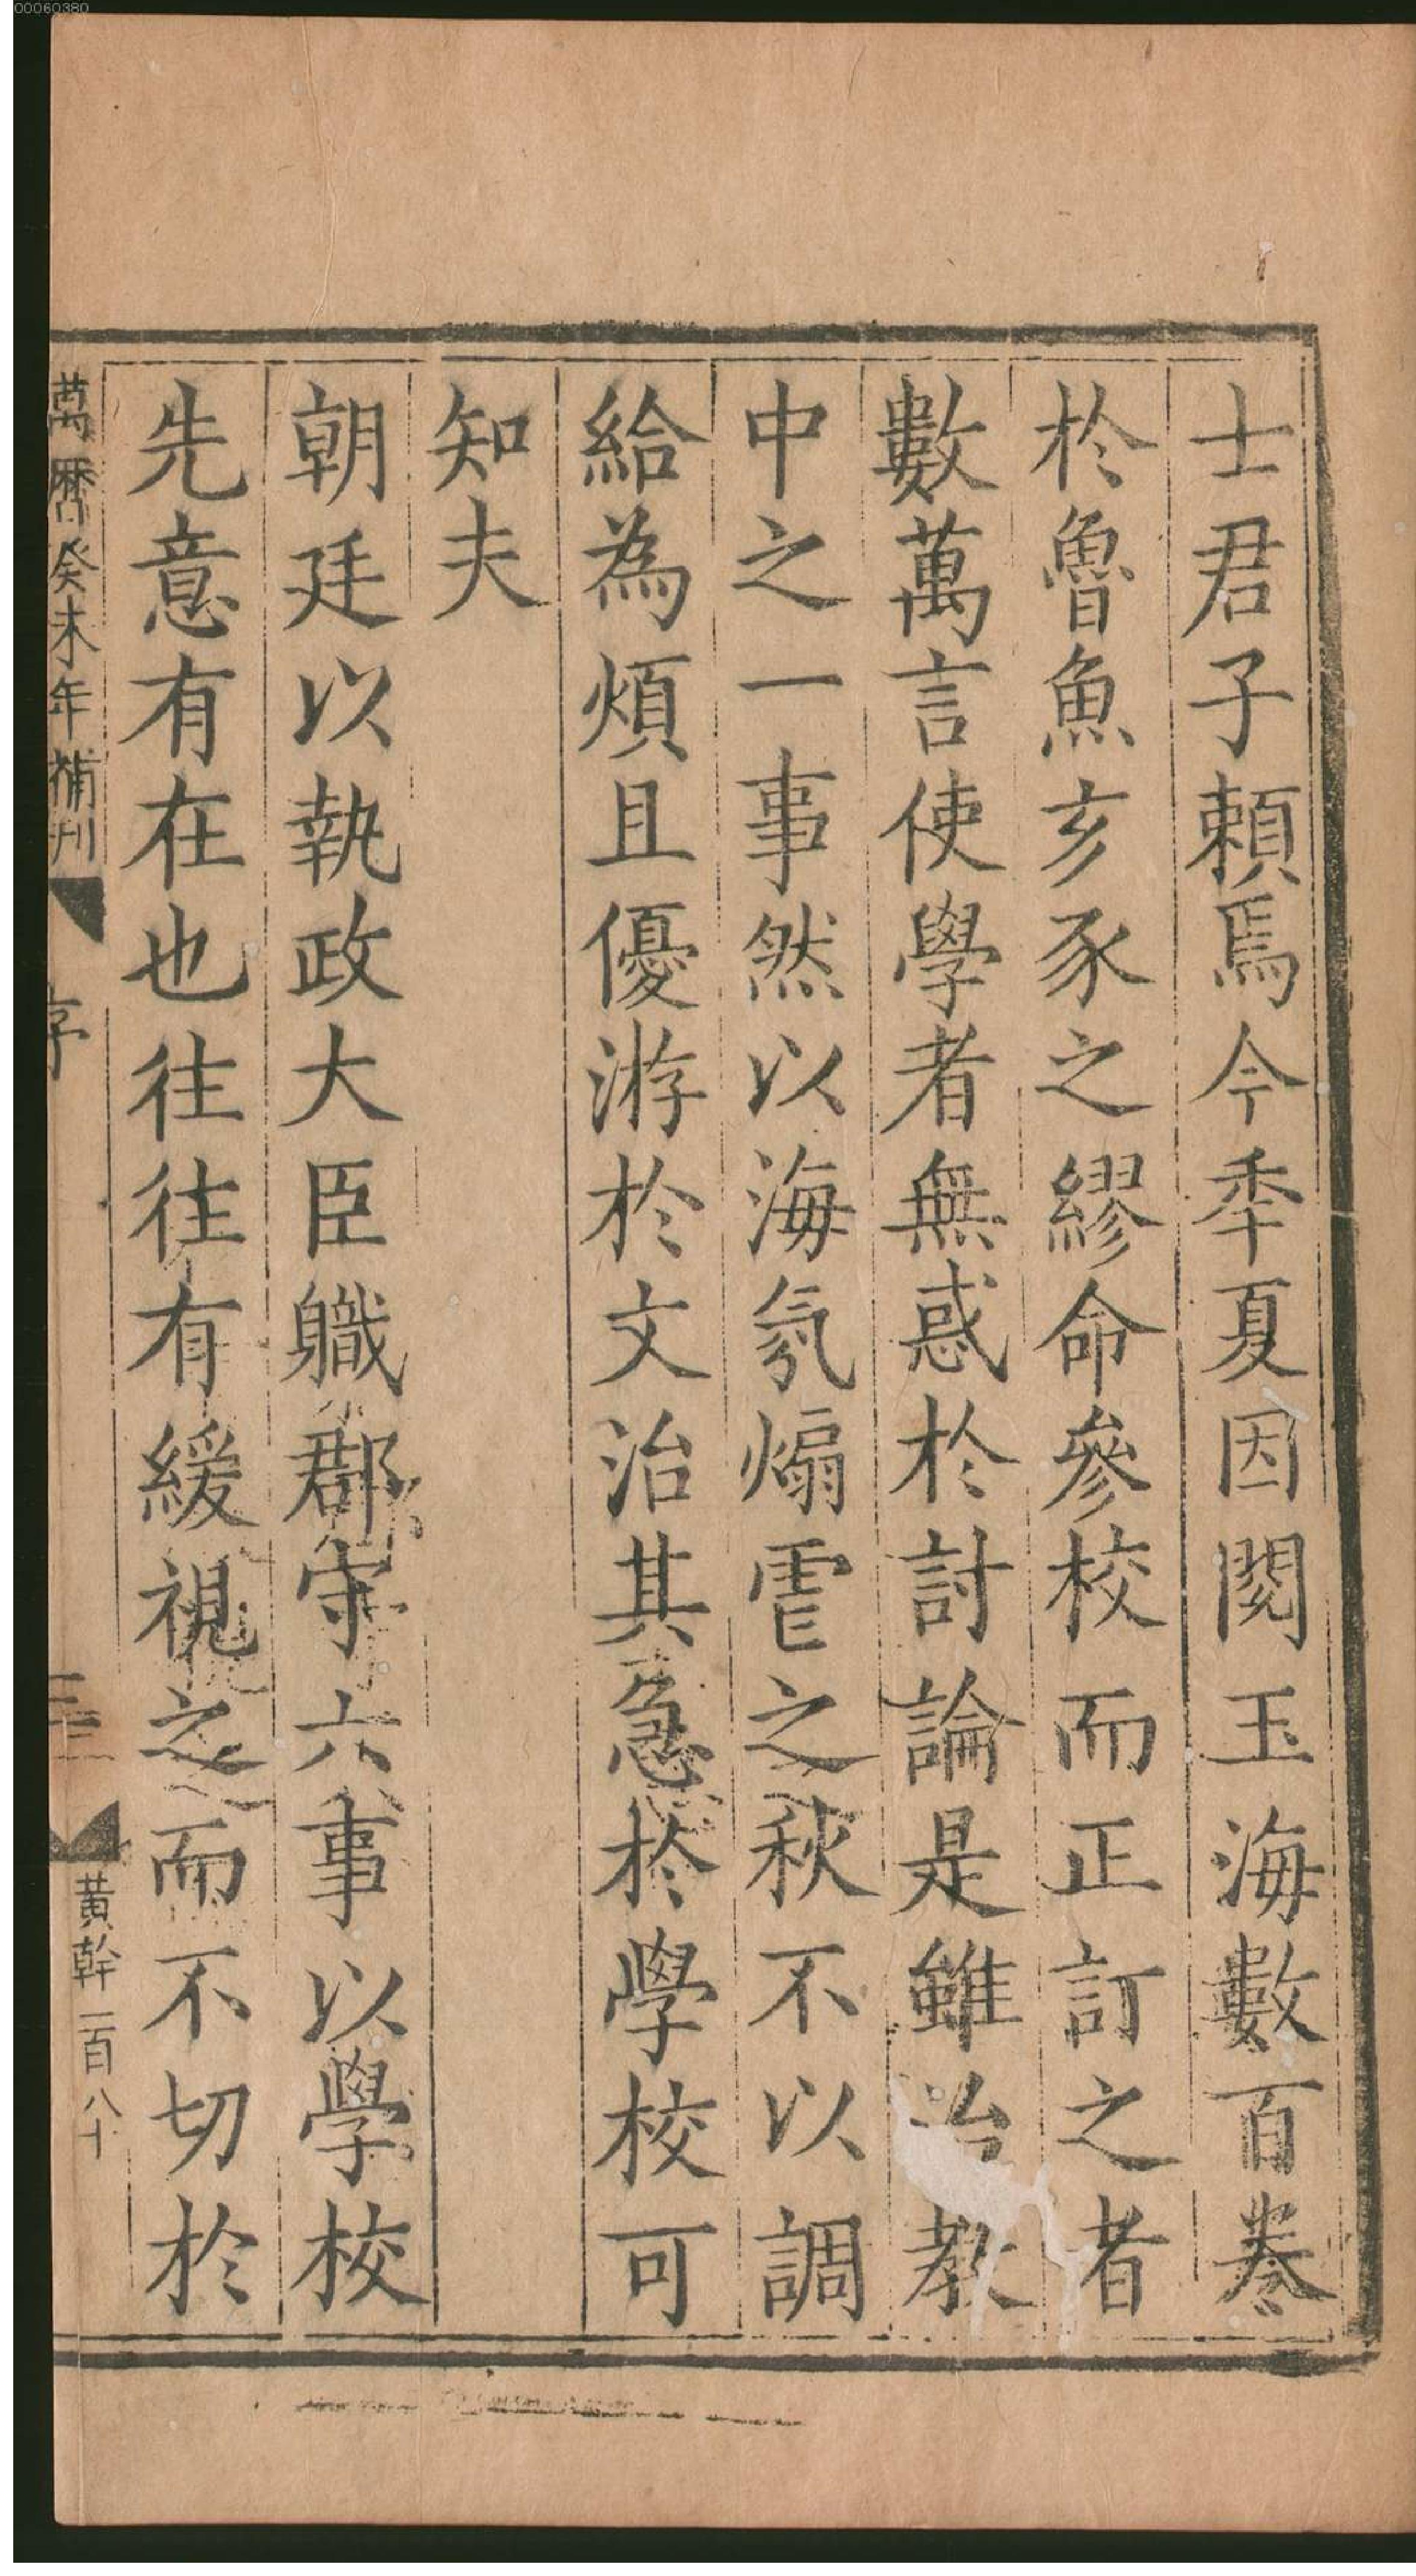 00060380
士君子頼焉今秊夏因閱玉海數百卷
於魯魚亥豕之繆命參校而正訂之者
數萬言使學者無惑於討論是雖治教
中之一事然以海氛煽虐之秋不以調
給為煩且優游於文治其急於學校可
知夫
朝廷以執政大臣職郡守六事以學校
先意有在也徃徃有緩視之而不切於
萬曆癸未年補刊
序
三
黄幹一百八十